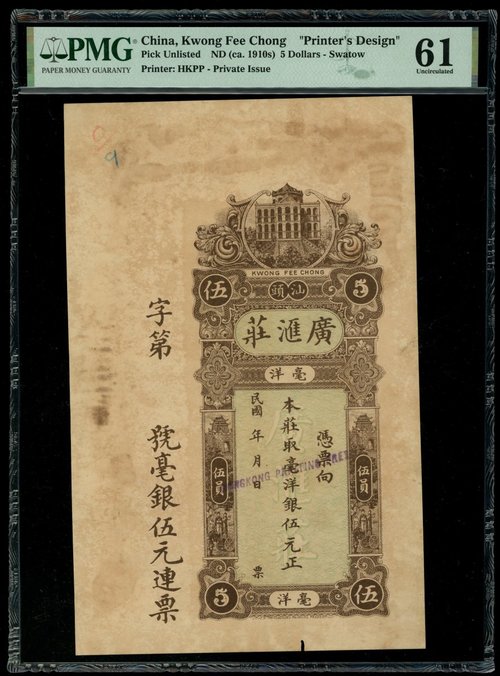 PMG
PAPER MONEY GUARANTY
China, Kwong Fee Chong "Printer's Design"
Pick Unlisted ND (ca. 1910s) 5 Dollars - Swatow
Printer: HKPP - Private Issue
61
Uncirculated
KWONG FEE CHONG
伍
頭汕
5
莊滙廣
洋毫
憑票向
本莊取毫洋銀伍元正
民國 年 月 日 票
伍員
伍員
5
洋毫
伍
字第 號毫銀伍元連票